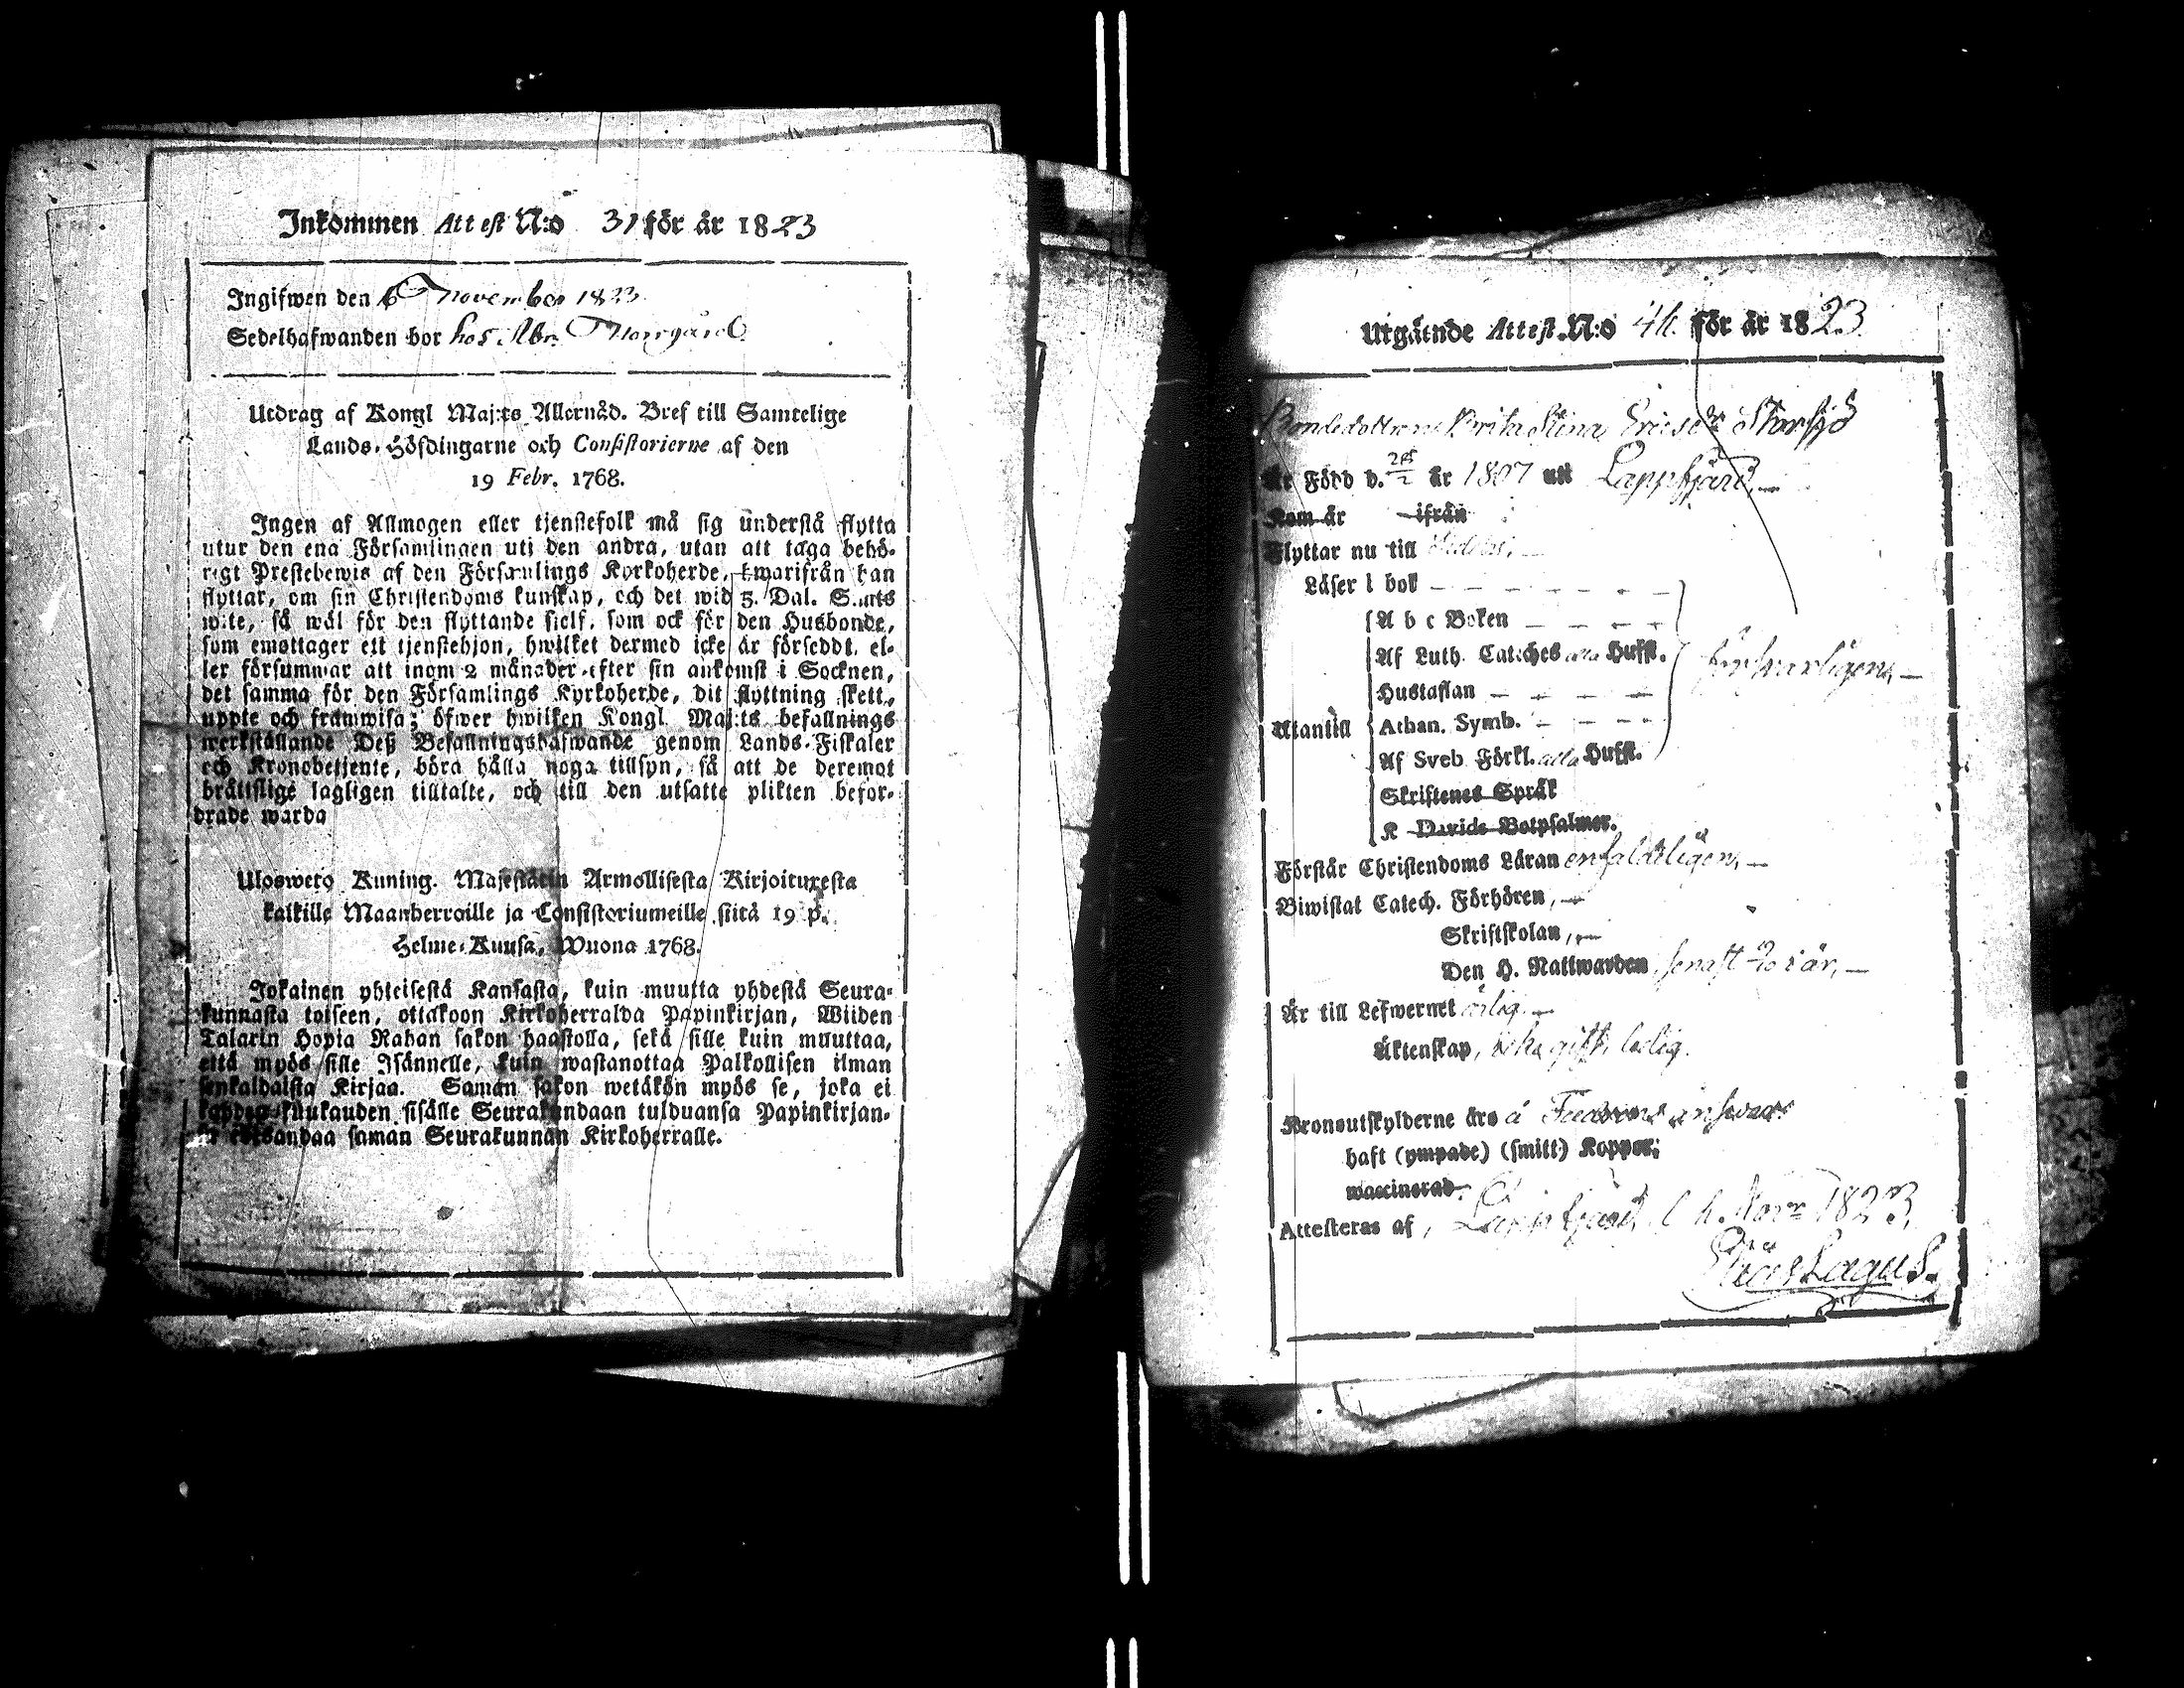 Inkommen Attest N:o 31 för år 1823
Ingifwen den 6 November 1823
Sedelhafwanden bor hos Abr. Norrgård
Utdrag af Kongl Maj:ts Allernåd. Bref till Samtelige
Lands-Höfdingarne och Consistorierne af den
19 Febr. 1768.
Ingen af Allmogen eller tjenstefolk må sig understå flytta
utur den ena Församlingen uti den andra, utan att taga behö-
rigt Prestebewis af den Församlings Kyrkoherde, hwarifrån han
flyttar, om sin Christendoms kunskap, och det wid 5. Dal. S:mts
wite, så wäl för den flyttande sielf, som ock för den Husbonde,
som emottager ett tjenstehjon, hwilket dermed icke är förseddt, el-
ler försummar att inom 2 månader efter sin ankomst i Socknen,
det samma för den Församlings Kyrkoherde, dit flyttning skett,
uppte och framwisa; öfwer hwilken Kongl. Maj:ts befallnings
werkställande Deß Befallningshafwande genom Lands-Fiskaler
och Kronobetjente, böra hålla noga tillsyn, så att de deremot
brättslige lagligen tilltalte, och till den utsatte plikten befor-
drade warda
Ulosweto Kuning. Majestätin Armollisesta Kirjoituxesta
kaikille Maanherroille ja Consistoriumeille siitä 19 p.
Helme-Kuusa, Wuona 1768.
Jokainen yhteisestä Kansasta, kuin muutta yhdestä Seura-
kunnasta toiseen, ottakoon Kirkoherralda Papinkirjan, Wiiden
Talarin Hopia Rahan sakon haastolla, sekä sille kuin muuttaa,
että myös sille Isännelle, kuin wastanottaa Palkollisen ilman
senkaldaista Kirjaa. Saman sakon wetäkön myös se, joka ei
kahden kuukauden sisälle Seurakundaan tulduansa Papinkirjan-
sa edesandaa saman Seurakunnan Kirkoherralle.
Utgående Attest N:o 44 för år 1823
Bondedottren Brita Stina Ericsdr Storsjö
Är Född d. 28/2 år 1807 uti Lappfjärd
Kom år ifrån
Flyttar nu till
Läser i bok
A b c Boken
Af Luth. Catches alla Hufst. försvarligen,
Hustaflan
Utantill Athan. Symb.
Af Sveb Förkl. alla Hufst.
Skriftenes Språk
K Davids Botpsalmer.
Förstår Christendoms Läran enfaldeligen,
Biwistat Catech. Förhören,
Skriftskolan,
Den H. Nattwarden, senast i år,
Är till Lefwernet ärlig
Äktenskap, icke gift, ledig.
Kronoutskylderne äro å Fadrens answar
haft (ympade) (smitt) Koppor;
waccinerad
Attesteras af, Lappfjärd, d. 4. Novr 1823,
Elias Lagus.